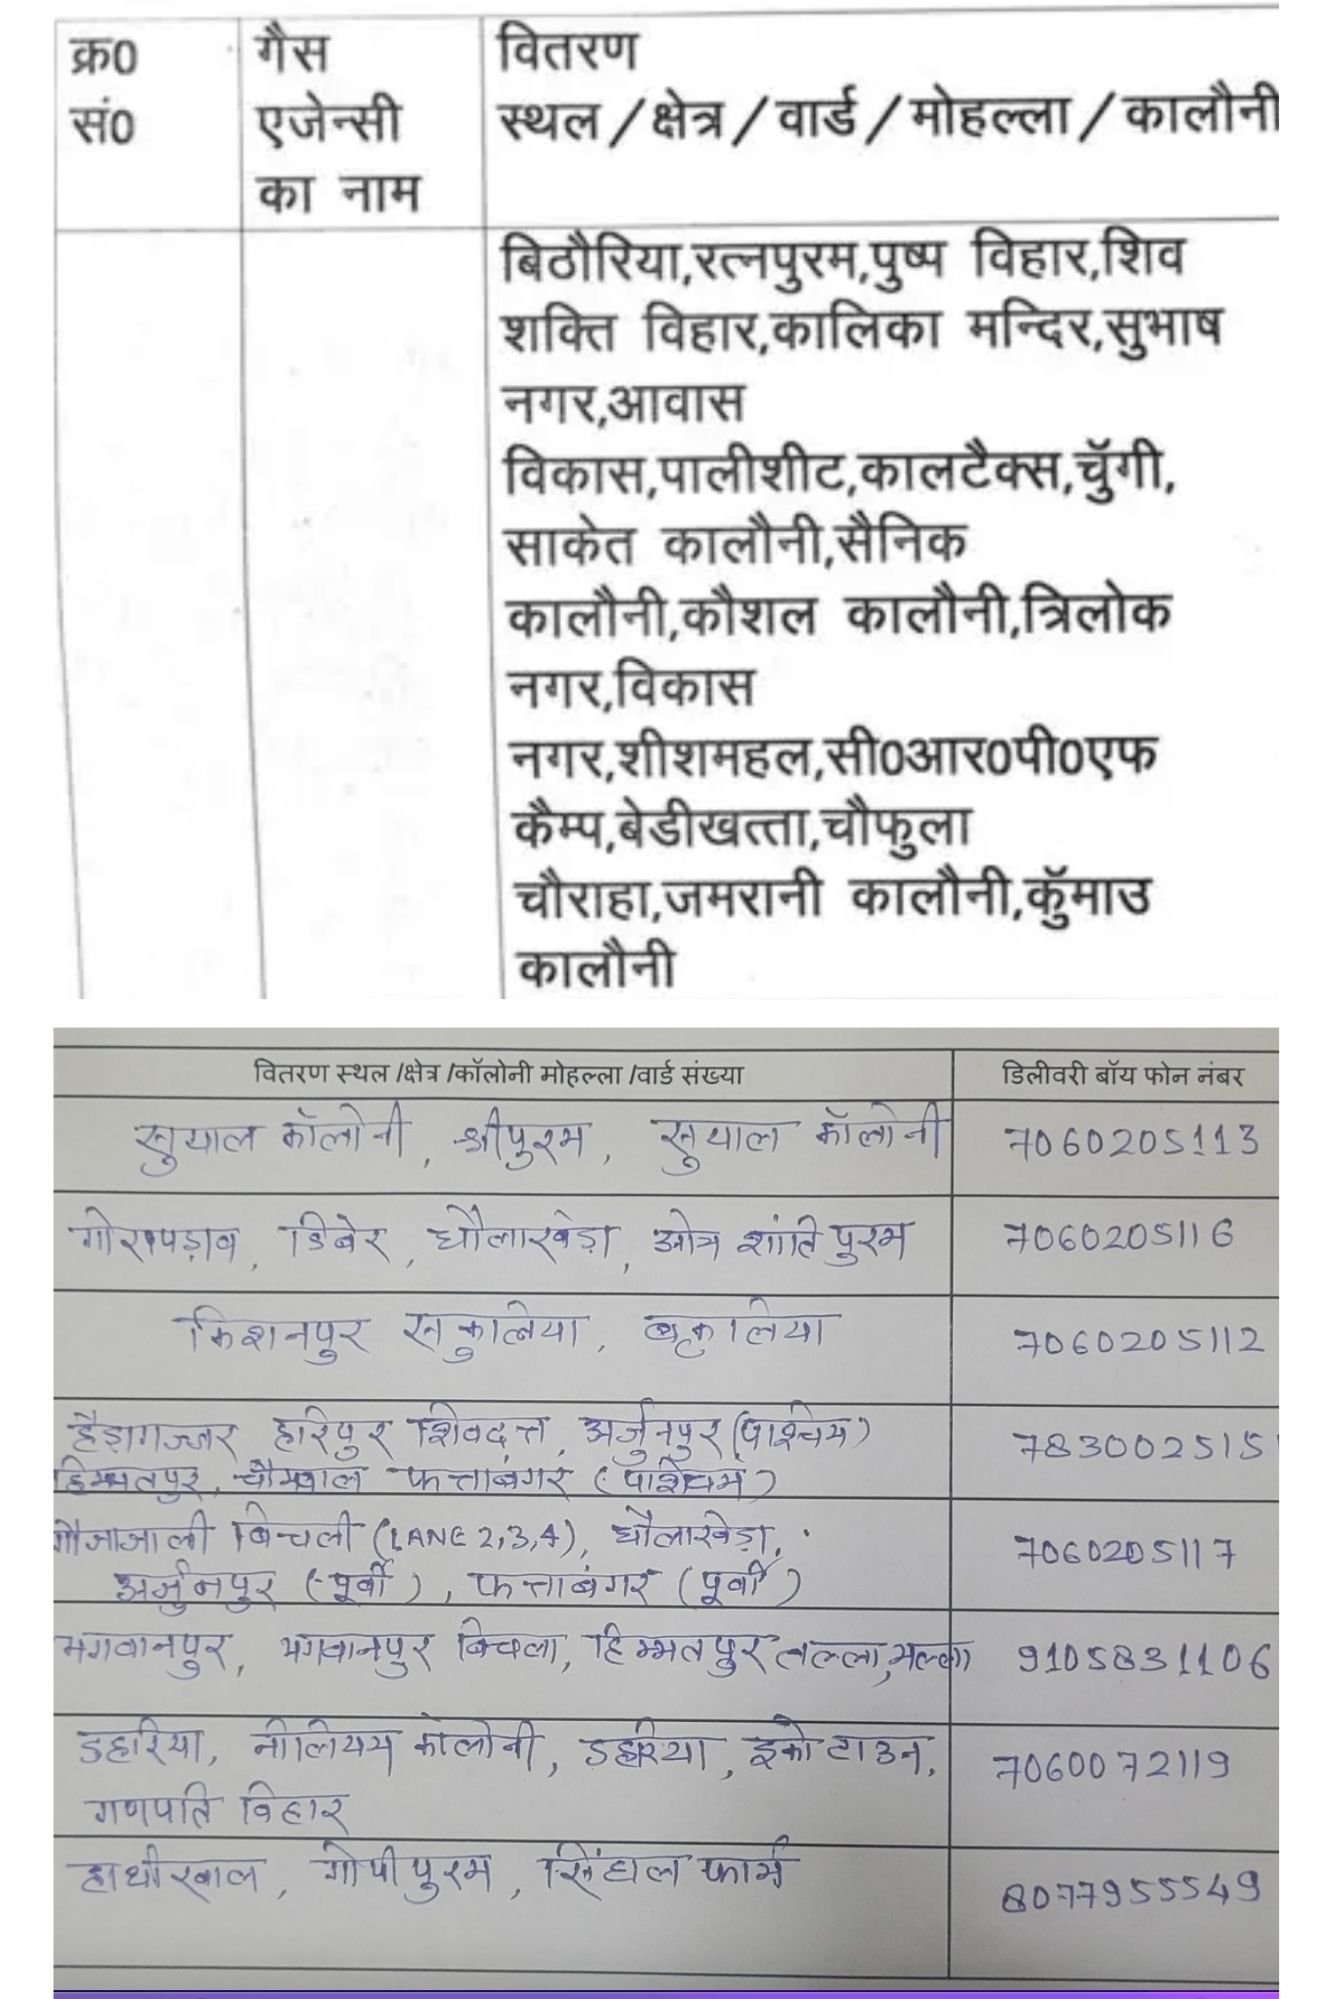 क्र0 गैस वितरण
सं0 एजेन्सी स्थल/क्षेत्र/वार्ड/मोहल्ला/कालौनी
का नाम
बिठौरिया,रत्नपुरम,पुष्प विहार,शिव
शक्ति विहार,कालिका मन्दिर,सुभाष
नगर,आवास
विकास,पालीशीट,कालटैक्स,चुॅगी,
साकेत कालौनी,सैनिक
कालौनी,कौशल कालौनी,त्रिलोक
नगर,विकास
नगर,शीशमहल,सी0आर0पी0एफ
कैम्प,बेडीखत्ता,चौफुला
चौराहा,जमरानी कालौनी,कुॅमाउ
कालौनी
वितरण स्थल /क्षेत्र /कॉलोनी मोहल्ला /वार्ड संख्या डिलीवरी बॉय फोन नंबर
सुयाल कॉलोनी, श्रीपुरम, सुयाल कॉलोनी 7060205113
गोरापड़ाव, डिबेर, धौलाखेड़ा, ओम शांति पुरम 7060205116
किशनपुर सकुलिया, बकुलिया 7060205112
हैड़ागज्जर हरिपुर शिवदत्त, अर्जुनपुर (पश्चिम) 783002515
हिम्मतपुर, चौम्वाल फत्ताबंगर (पश्चिम)
गौजाजाली बिचली (LANE 2,3,4), धौलाखेड़ा, 7060205117
अर्जुनपुर (पूर्वी), फत्ताबंगर (पूर्वी)
भगवानपुर, भगवानपुर बिचला, हिम्मतपुर तल्ला,मल्ला 9105831106
डहरिया, नीलियम कॉलोनी, डहरिया, इको टाउन, 7060072119
गणपति विहार
हाथीखाल, गोपीपुरम, सिंघल फार्म 8077955549